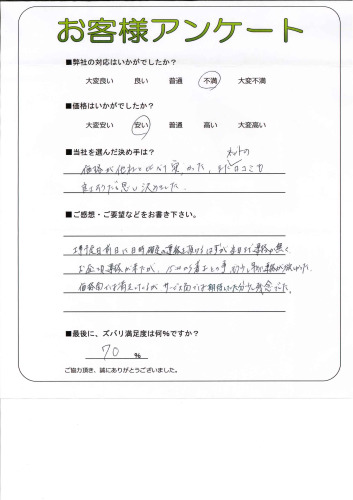 お客様アンケート
■弊社の対応はいかがでしたか？
大変良い 良い 普通 不満 大変不満
■価格はいかがでしたか？
大変安い 安い 普通 高い 大変高い
■当社を選んだ決め手は？
ネットの
価格が他社と比べて安かった。また口コミも
決めました。
■ご感想・ご要望などをお書き下さい。
工事予定日前日に日時確定の連絡を頂けるはずが本日まで連絡が無く
価格面では満足しているが サービス面では期待していた分少し残念だった。
■最後に、ズバリ満足度は何%ですか？
70 %
ご協力頂き、誠にありがとうございました。